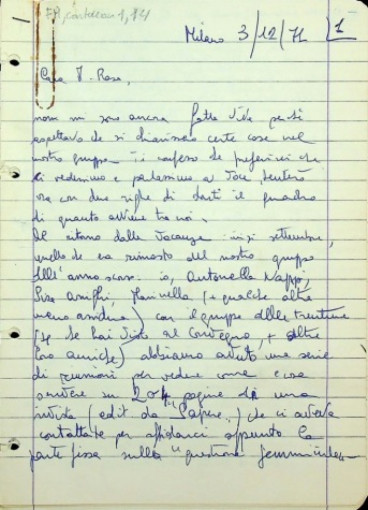 Milano 3/12/71 1
Cara
non mi sono ancora fatta viva perché
aspettavo che si chiarissero certe cose nel
nostro gruppo. Ti confesso che preferirei che
ci vedessimo e parlassimo a voce, tenterò
ora con due righe di darti il quadro
di quanto avviene tra noi.
Al ritorno dalle vacanze inizi settembre,
quello che era rimasto del nostro gruppo
dell'anno scorso: io, Antonella Nappi,
(+ qualche altra
meno assidua) con il gruppo delle trentine
(che hai visto al convegno, + altre
loro amiche) abbiamo avuto una serie
di riunioni per vedere come e cosa
scrivere su 2 o 4 pagine di una
rivista (edit. da Sapere) che ci aveva
contattate per affidarci appunto la
parte fissa sulla "questione femminile"